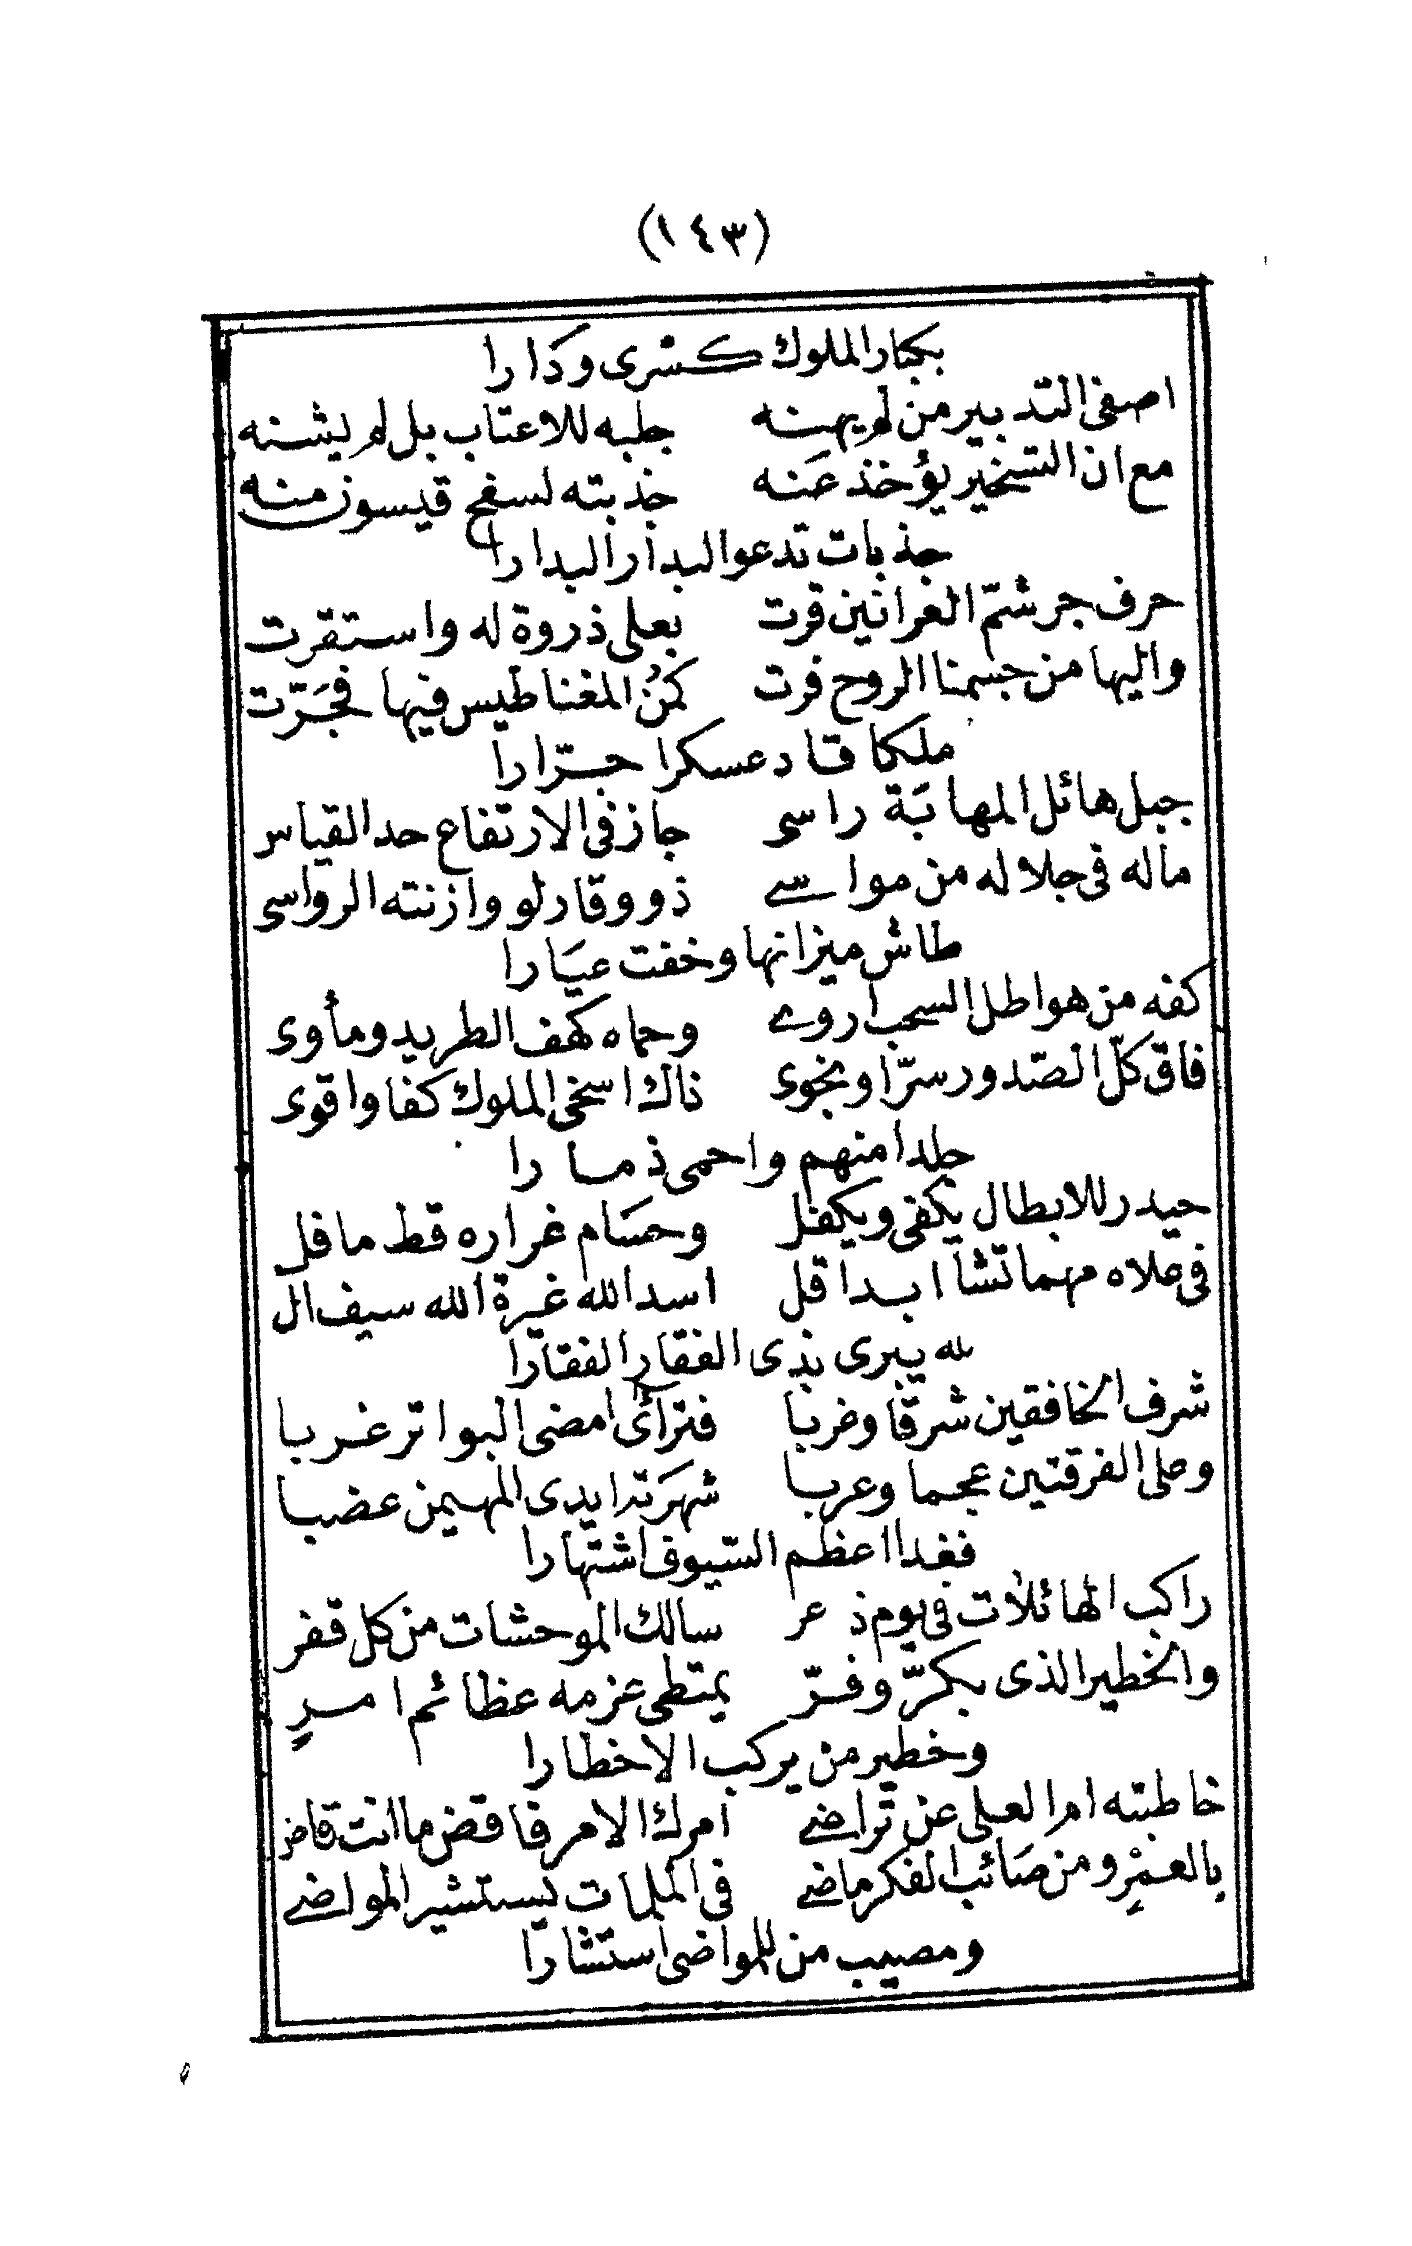 (١٤٣)
بكبار الملوك كسرى ودارا
اصفى التدبير من لم يهنه جلبه للاعتاب بل لم يشنه
مع ان التسخير يؤخذ عنه جذبته لسفح قيسوز منه
جذبات تدعو البدار البدارا
حرف جرشم الغرانين قرت بعلى ذروة له واستقرت
واليها من جسمنا الروح فرت كمن المغناطيس فيها فجرت
ملكا قاد عسكرا جرّارا
جبل هائل المهابة راسى جاز فى الارتفاع حد القياس
ماله فى جلاله من مواسے ذو وقار لو وازنته الرواسى
طاش ميزانها وخفت عيارا
كفه من هواطل السحب اروے وحماه كهف الطريد ومأوى
فاق كلّ الصّدور سرّا ونجوى ذاك اسخى الملوك كفا واقوى
جلدا منهم واحمى ذمارا
حيدر للابطال يكفى ويكفل وحسام غراره قط ما فل
فى علاه مهما تشا ابدا قل اسد الله غرة الله سيف ال
له يبرى بذى الفقار الفقارا
شرف الخافقين شرقا وغربا فترأى امضى البواتر غربا
وعلى الفرقتين عجما وعربا شهرته ايدى المهيمن عضبا
فغدا اعظم السّيوف اشتهارا
راكب الهائلات فى يوم ذعر سالك الموحشات من كل قفر
والخطير الذى بكرّ وفرّ يمتطى عزمه عظائم امر
وخطير من يركب الاخطارا
خاطبته ام العلى عن تراضے امرك الامر فاقض ما انت قاض
بالعمرو من صائب الفكر ماضے فى الملمات يستشير المواضے
ومصيب من للمواضى استشارا